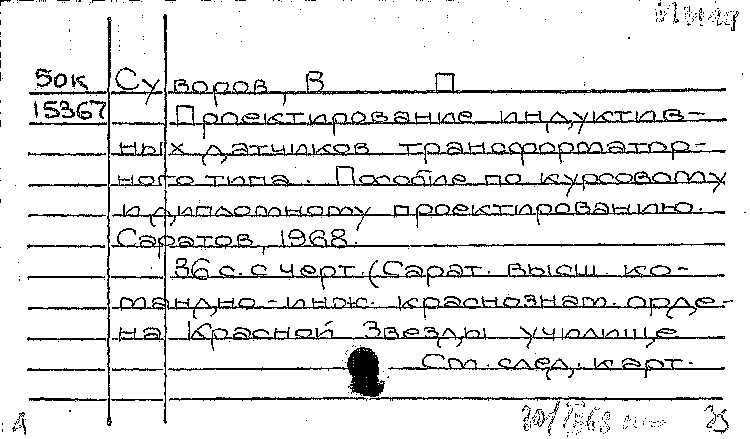 50к Суворов, В П
15367 Проектирование индуктив-
ных датчиков трансформатор-
ного типа. Пособие по курсовому
и дипломному проектированию.
Саратов, 1968.
36 с. с черт. (Сарат. высш. ко-
мандно-инж. краснознам. орде-
на Красной Звезды училище
См. след. карт.